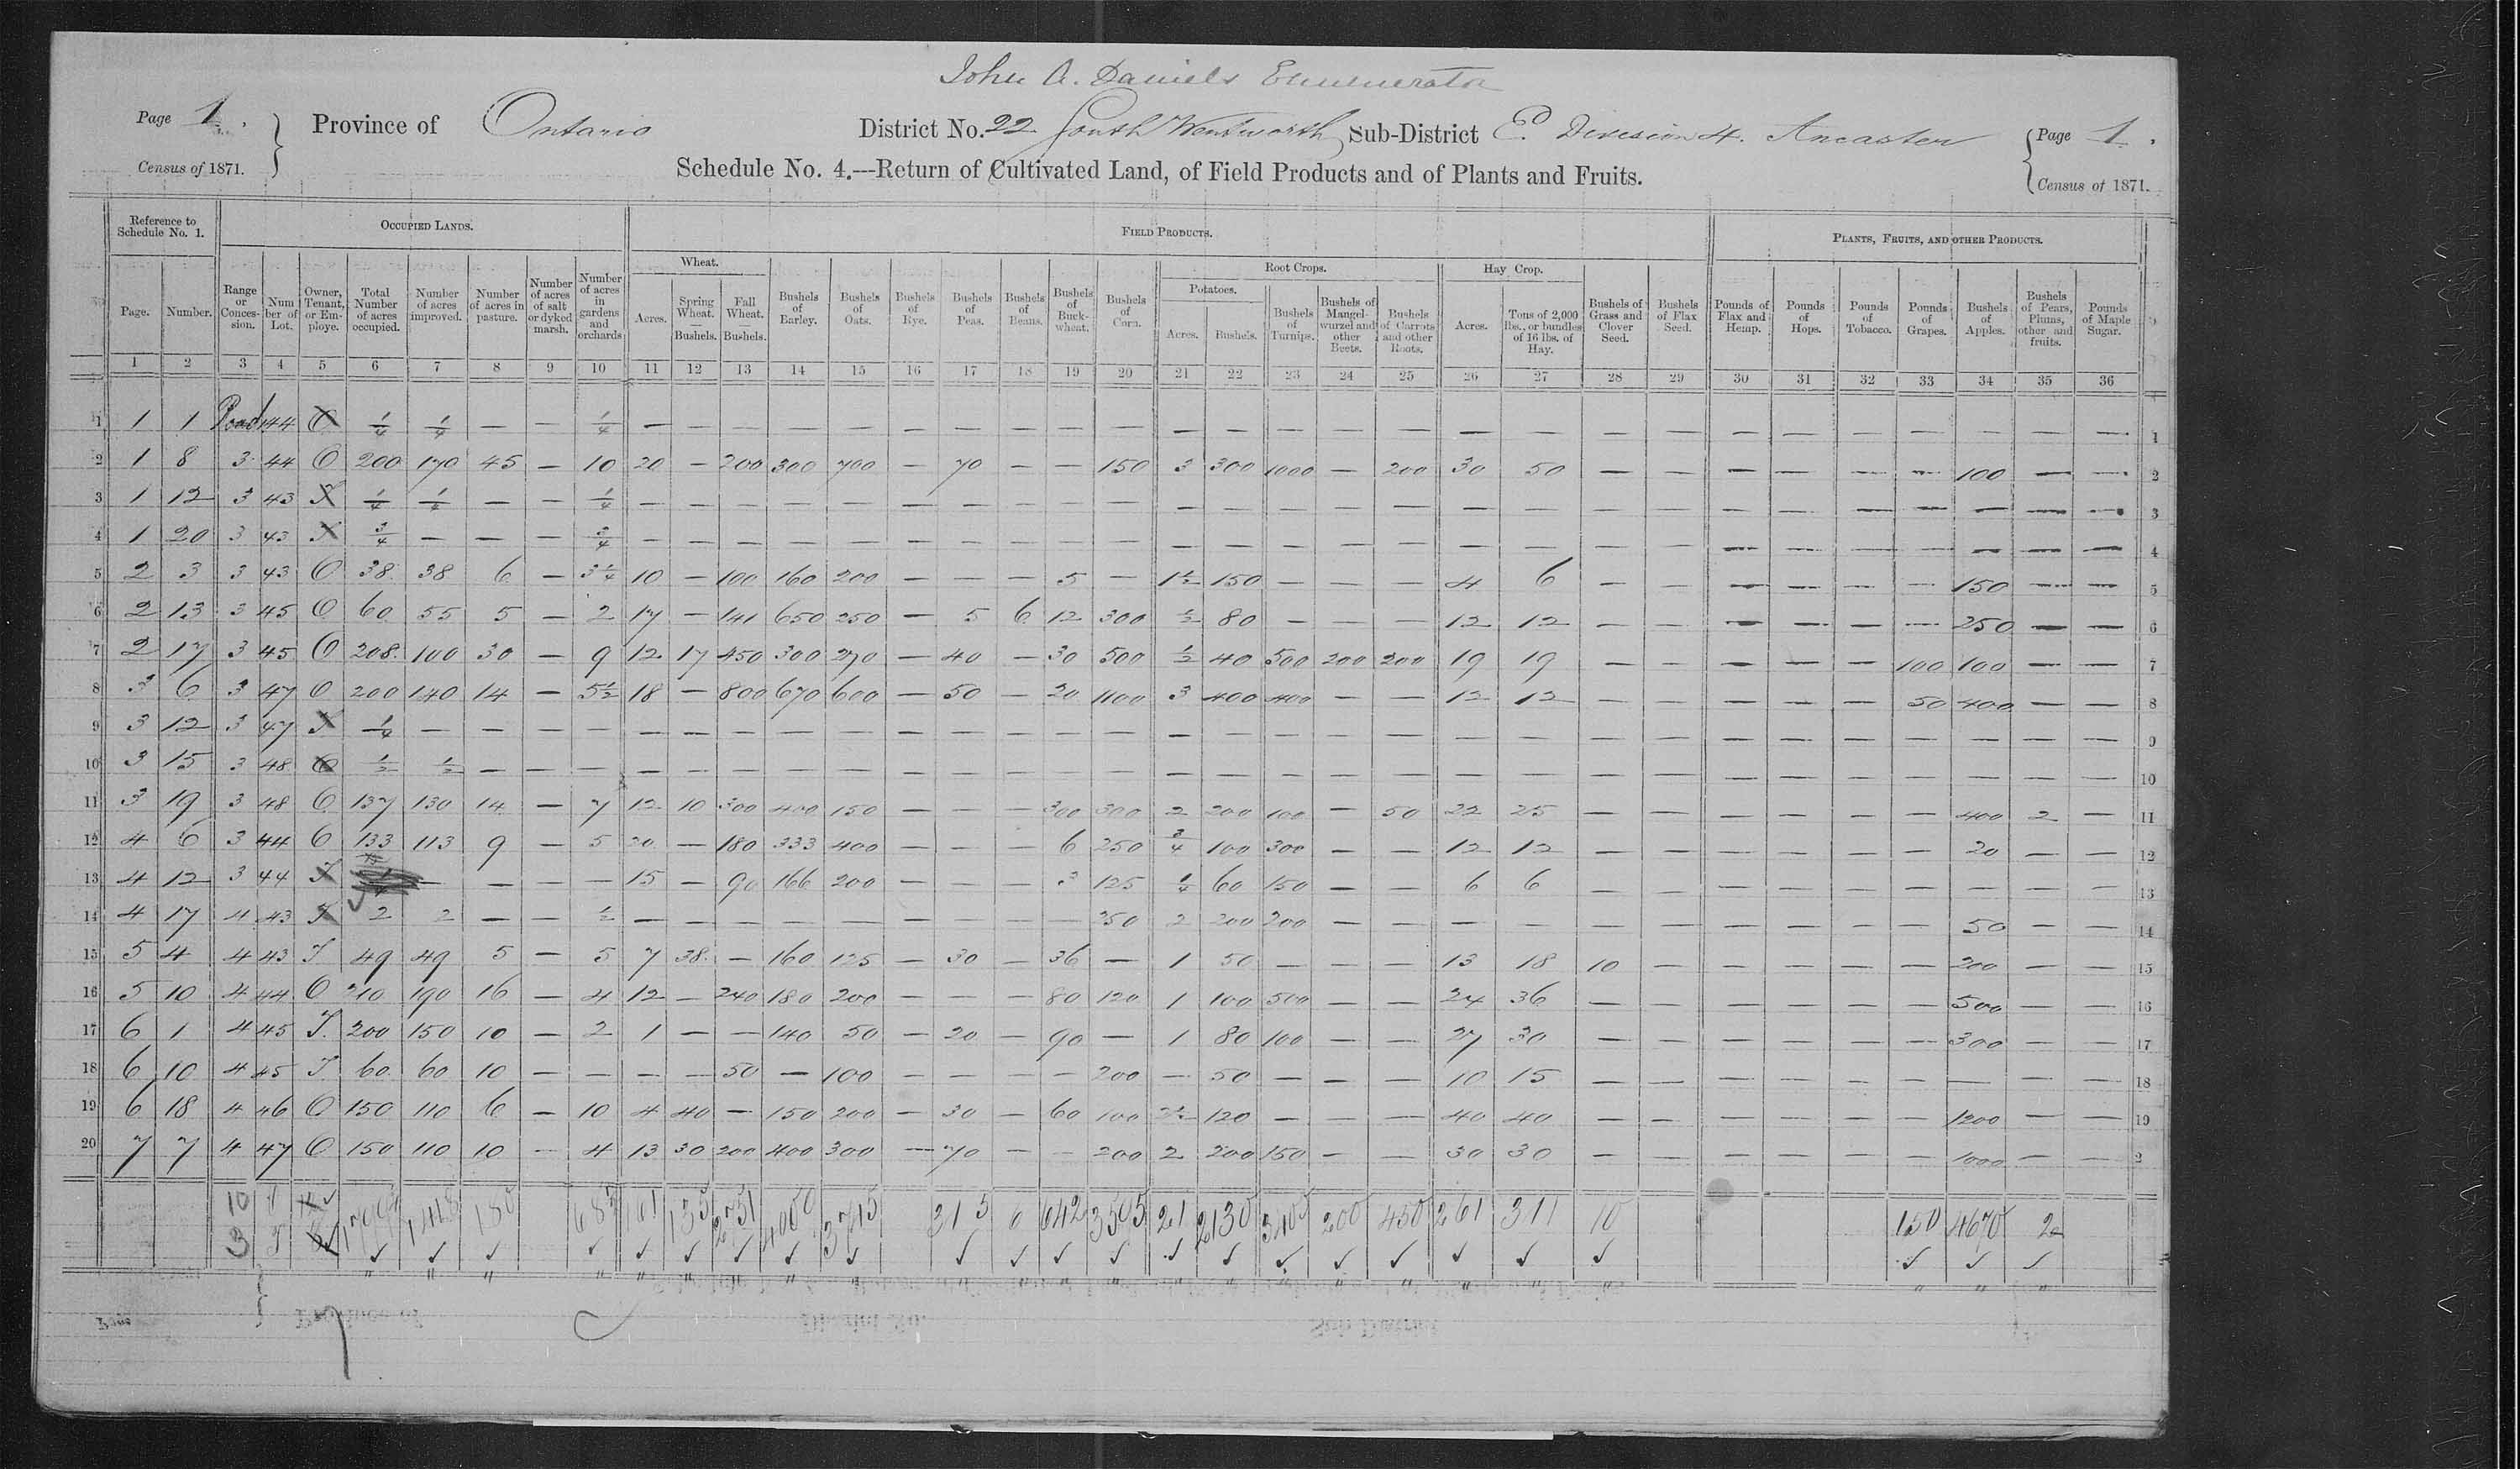 John A. Daniels Enumerator
Page 1. Province of Ontario District No. 22 South Wentworth Sub-District E. Division 4. Ancaster Page 1.
Census of 1871. Schedule No. 4.---Return of Cultivated Land, of Field Products and of Plants and Fruits. Census of 1871.
Reference to Schedule No. 1. OCCUPIED LANDS. FIELD PRODUCTS. PLANTS, FRUITS, AND OTHER PRODUCTS.
Wheat. Root Crops. Hay Crop.
Potatoes.
Page. Number. Range or Conces-sion. Num ber of Lot. Owner, Tenant, or Em-ploye. Total Number of acres occupied. Number of acres improved. Number of acres in pasture. Number of acres of salt or dyked marsh. Number of acres in gardens and orchards Acres. Spring Wheat. — Bushels. Fall Wheat. — Bushels. Bushels of Barley. Bushels of Oats. Bushels of Rye. Bushels of Peas. Bushels of Beans. Bushels of Buck-wheat. Bushels of Corn. Acres. Bushels. Bushels of Turnips. Bushels of Mangel-wurzel and other Beets. Bushels of Carrots and other Roots. Acres. Tons of 2,000 lbs., or bundles of 16 lbs. of Hay. Bushels of Grass and Clover Seed. Bushels of Flax Seed. Pounds of Flax and Hemp. Pounds of Hops. Pounds of Tobacco. Pounds of Grapes. Bushels of Apples. Bushels of Pears, Plums, other and fruits. Pounds of Maple Sugar.
1 2 3 4 5 6 7 8 9 10 11 12 13 14 15 16 17 18 19 20 21 22 23 24 25 26 27 28 29 30 31 32 33 34 35 36
1 1 1 Road 44 O 1/4 1/4 — — 1/4 — — — — — — — — — — — — — — — — — — — — — — — — — — 1
2 1 8 3 44 O 200 170 45 — 10 20 — 200 300 700 — 70 — — 150 3 300 1000 — 200 30 50 — — — — — — 100 — — 2
3 1 12 3 43 T 1/4 1/4 — — 1/4 — — — — — — — — — — — — — — — — — — — — — — — — — — 3
4 1 20 3 43 T 3/4 — — — 3/4 — — — — — — — — — — — — — — — — — — — — — — — — — — 4
5 2 3 3 43 O 38 38 6 — 3 1/4 10 — 100 160 200 — — — 5 — 1 1/2 150 — — — 4 6 — — — — — — 150 — — 5
6 2 13 3 45 O 60 55 5 — 2 17 — 141 650 250 — 5 6 12 300 1/2 80 — — — 12 12 — — — — — — 250 — — 6
7 2 17 3 45 O 208 100 30 — 9 12 17 450 300 270 — 40 — 30 500 1/2 40 500 200 200 19 19 — — — — — 100 100 — — 7
8 3 6 3 47 O 200 140 14 — 5 1/2 18 — 800 670 600 — 50 — 20 1100 3 400 400 — — 12 12 — — — — — 50 400 — — 8
9 3 12 3 47 T 1/4 — — — — — — — — — — — — — — — — — — — — — — — — — — — — — — 9
10 3 15 3 48 O 1/2 1/2 — — — — — — — — — — — — — — — — — — — — — — — — — — — — — 10
11 3 19 3 48 O 137 130 14 — 7 12 10 300 400 150 — — — 300 300 2 200 100 — 50 22 25 — — — — — — 400 2 — 11
12 4 6 3 44 O 133 113 9 — 5 20 — 180 333 400 — — — 6 250 3/4 100 300 — — 12 12 — — — — — — 20 — — 12
13 4 12 3 44 T — — — — 15 — 90 166 200 — — — 3 125 1/4 60 150 — — 6 6 — — — — — — — — — 13
14 4 17 4 43 T 2 2 — — 1/2 — — — — — — — — — 250 2 200 200 — — — — — — — — — — 50 — — 14
15 5 4 4 43 T 49 49 5 — 5 7 38 — 160 125 — 30 — 36 — 1 50 — — — 13 18 10 — — — — — 200 — — 15
16 5 10 4 44 O 210 190 16 — 4 12 — 240 180 200 — — — 80 120 1 100 500 — — 24 36 — — — — — — 500 — — 16
17 6 1 4 45 T. 200 150 10 — 2 1 — — 140 50 — 20 — 90 — 1 80 100 — — 27 30 — — — — — — 300 — — 17
18 6 10 4 45 T 60 60 10 — — — — 50 — 100 — — — — 200 — 50 — — — 10 15 — — — — — — — — — 18
19 6 18 4 46 O 150 110 6 — 10 4 40 — 150 200 — 30 — 60 100 2 1/2 120 — — — 40 40 — — — — — — 1200 — — 19
20 7 7 4 47 O 150 110 10 — 4 13 30 200 400 300 — 70 — — 200 2 200 150 — — 30 30 — — — — — — 1000 — — 2
10 1418 180 161 135 2751 4050 3715 315 6 642 3505 21 2130 3405 200 450 261 311 10 150 4670 2
3 T
7